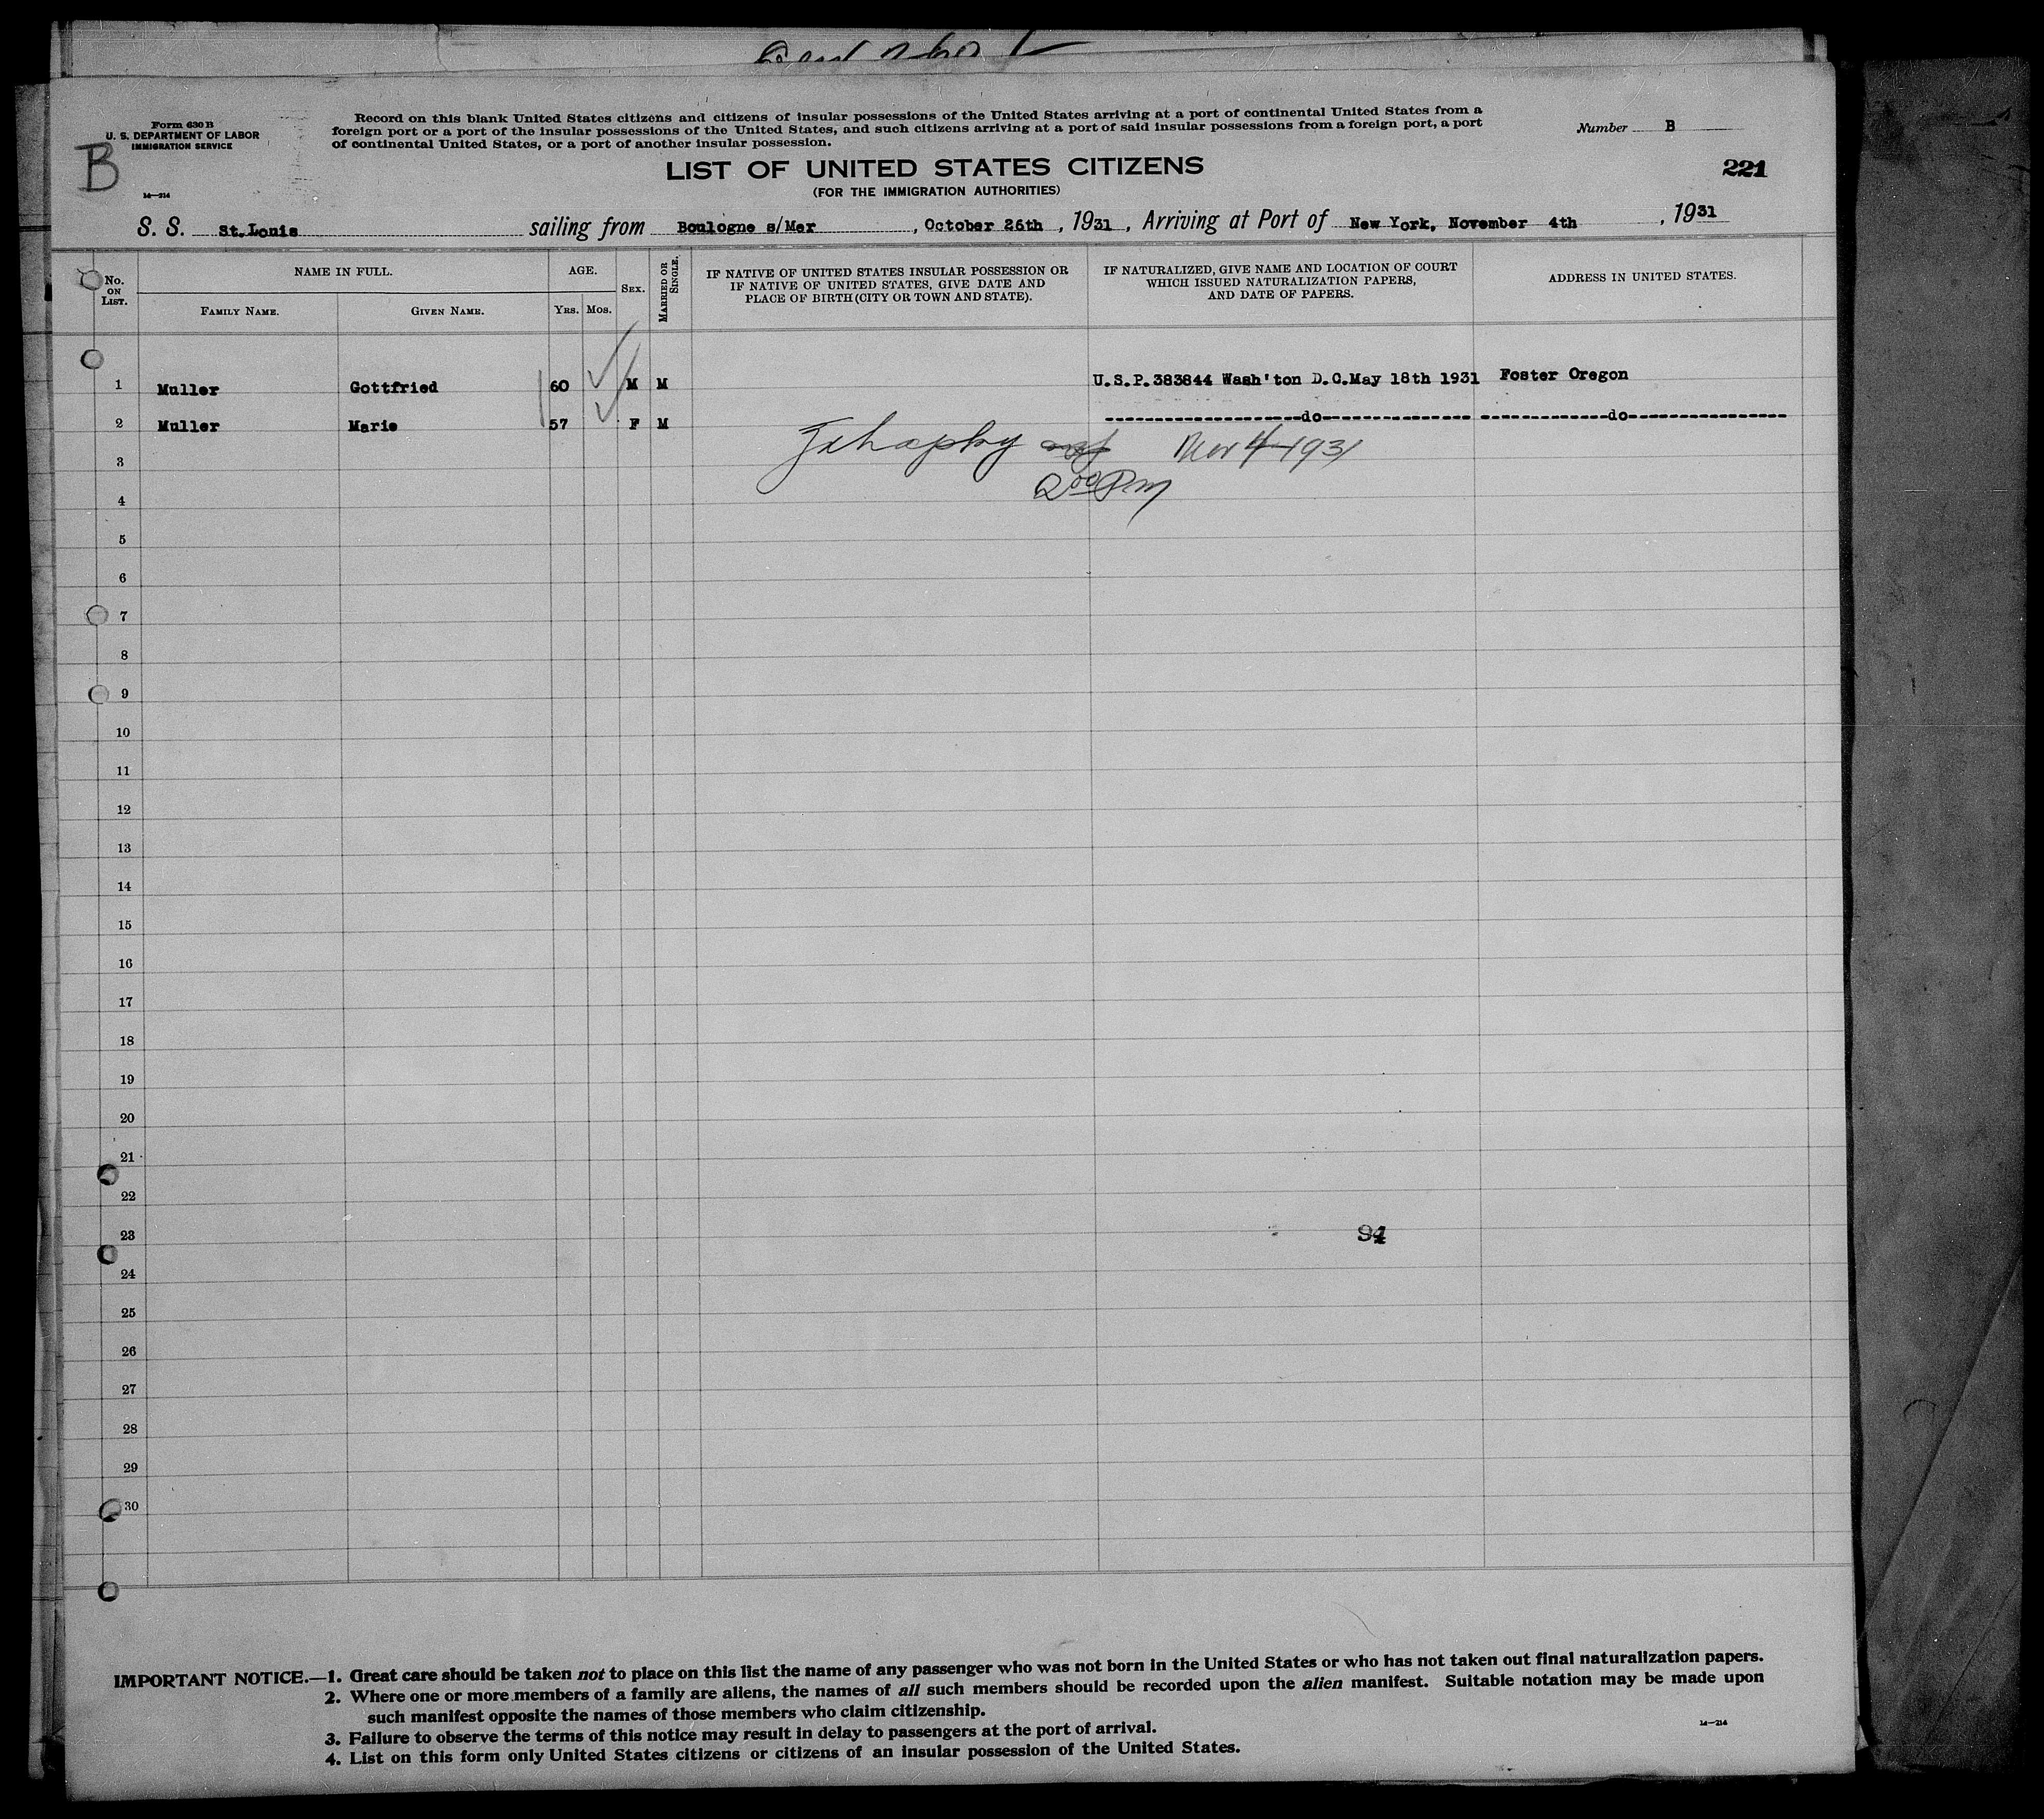 Form 630 B
U. S. DEPARTMENT OF LABOR
IMMIGRATION SERVICE
B
14—214
Record on this blank United States citizens and citizens of insular possessions of the United States arriving at a port of continental United States from a
foreign port or a port of the insular possessions of the United States, and such citizens arriving at a port of said insular possessions from a foreign port, a port
of continental United States, or a port of another insular possession.
Number B
LIST OF UNITED STATES CITIZENS
(FOR THE IMMIGRATION AUTHORITIES)
221
S. S. St.Louis sailing from Boulogne s/Mer , October 26th , 1931 , Arriving at Port of New York, November 4th , 1931
No. ON LIST.
NAME IN FULL.
FAMILY NAME. GIVEN NAME.
AGE.
YRS. MOS.
SEX.
MARRIED OR SINGLE.
IF NATIVE OF UNITED STATES INSULAR POSSESSION OR
IF NATIVE OF UNITED STATES, GIVE DATE AND
PLACE OF BIRTH (CITY OR TOWN AND STATE).
IF NATURALIZED, GIVE NAME AND LOCATION OF COURT
WHICH ISSUED NATURALIZATION PAPERS,
AND DATE OF PAPERS.
ADDRESS IN UNITED STATES.
1 Muller Gottfried 60 M M U.S.P.383844 Wash'ton D.C.May 18th 1931 Foster Oregon
2 Muller Marie 57 F M do do
Nov 4 1931
2 00 Pm
3
4
5
6
7
8
9
10
11
12
13
14
15
16
17
18
19
20
21
22
23
94
24
25
26
27
28
29
30
IMPORTANT NOTICE.—1. Great care should be taken not to place on this list the name of any passenger who was not born in the United States or who has not taken out final naturalization papers.
2. Where one or more members of a family are aliens, the names of all such members should be recorded upon the alien manifest. Suitable notation may be made upon
such manifest opposite the names of those members who claim citizenship.
3. Failure to observe the terms of this notice may result in delay to passengers at the port of arrival.
4. List on this form only United States citizens or citizens of an insular possession of the United States.
14—214